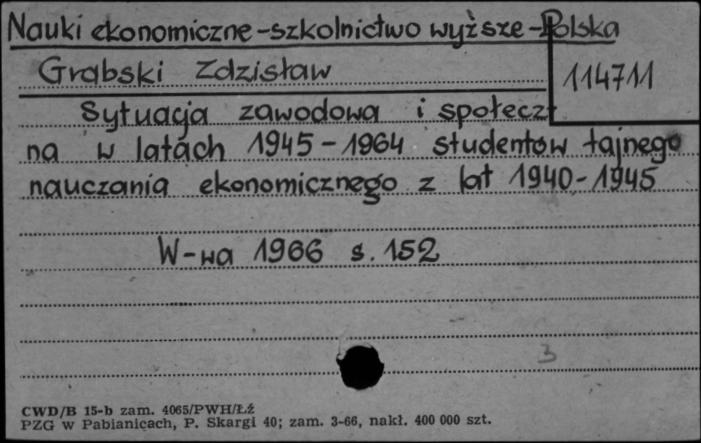 Nauki ekonomiczne-szkolnictwo wyższe-Polska
Grabski Zdzisław
114711
Sytuacja zawodowa i społecz
na w latach 1945-1964 studentów tajnego
nauczania ekonomicznego z lat 1940-1945
W-wa 1966 s. 152
3
CWD/B 15-b zam. 4065/PWH/Łź
PZG w Pabianicach, P. Skargi 40; zam. 3-66, nakł. 400 000 szt.